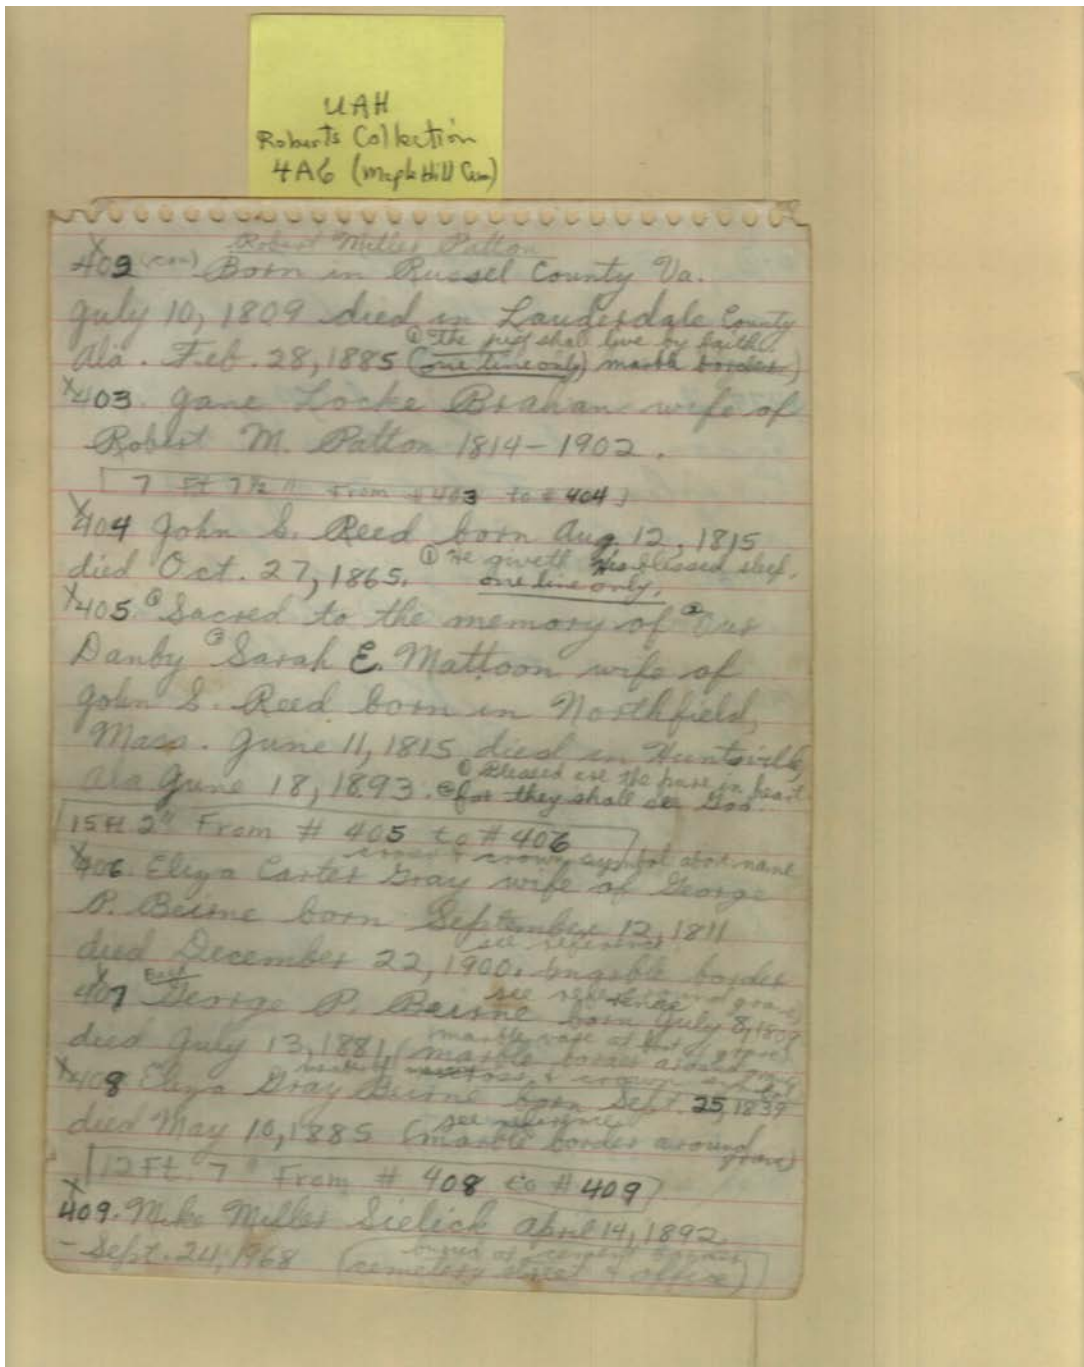 UAH
Roberts Collection
4A6 (Maple Hill Cem)
Robert Miller Patton
402 (con) Born in Russel County Va.
July 10, 1809 died in Lauderdale County
① The just shall live by faith
Ala. Feb. 28, 1885 (one line only) marble border)
X403. Jane Locke Brahan wife of
Robert M. Patton 1814-1902.
[7 Ft 7½ " From #403 to #404]
X404 John S. Reed born Aug. 12, 1815
① He giveth His blessed sleep.
died Oct. 27, 1865. one line only.
X405. ① Sacred to the memory of ② Our
Danby ③ Sarah E. Mattoon wife of
John S. Reed born in Northfield,
Mass. June 11, 1815 died in Huntsville,
① Blessed are the pure in heart
Ala June 18, 1893. ② for they shall see God.
15 Ft 2" From # 405 to # 406
cross & crown symbol above name
X406. Eliza Carter Gray wife of George
P. Beirne born September 12, 1811
see reference
died December 22, 1900. marble border
see reference
X407 George P. Beirne born July 8, 1809
marble vase at
died July 13, 1881, (marble border around
cross & crown
X408 Eliza Gray Beirne born Sept. 25, 1839
see reference
died May 10, 1885 (marble border around grave)
[12 Ft. 7" From # 408 to # 409]
X409. Mike Miller Sielick April 14, 1892
- Sept. 24, 1968 (cemetery street & office)